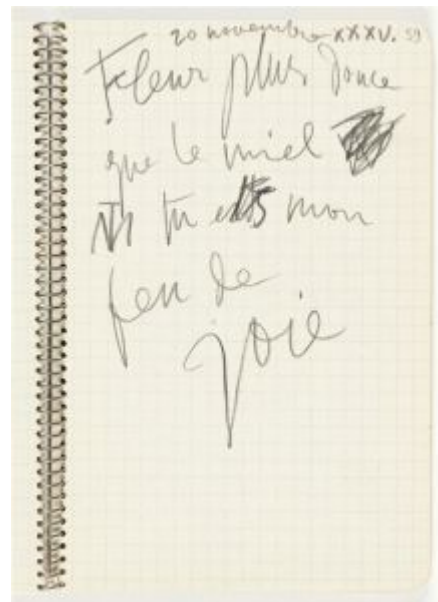 20 novembre XXXV. 59
Fleur plus douce
que le miel
tu es mon
feu de
joie